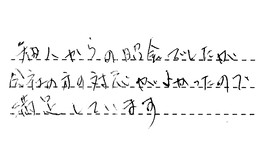 知人からの紹介でしたが
会社の方の対応がよかったので
満足しています